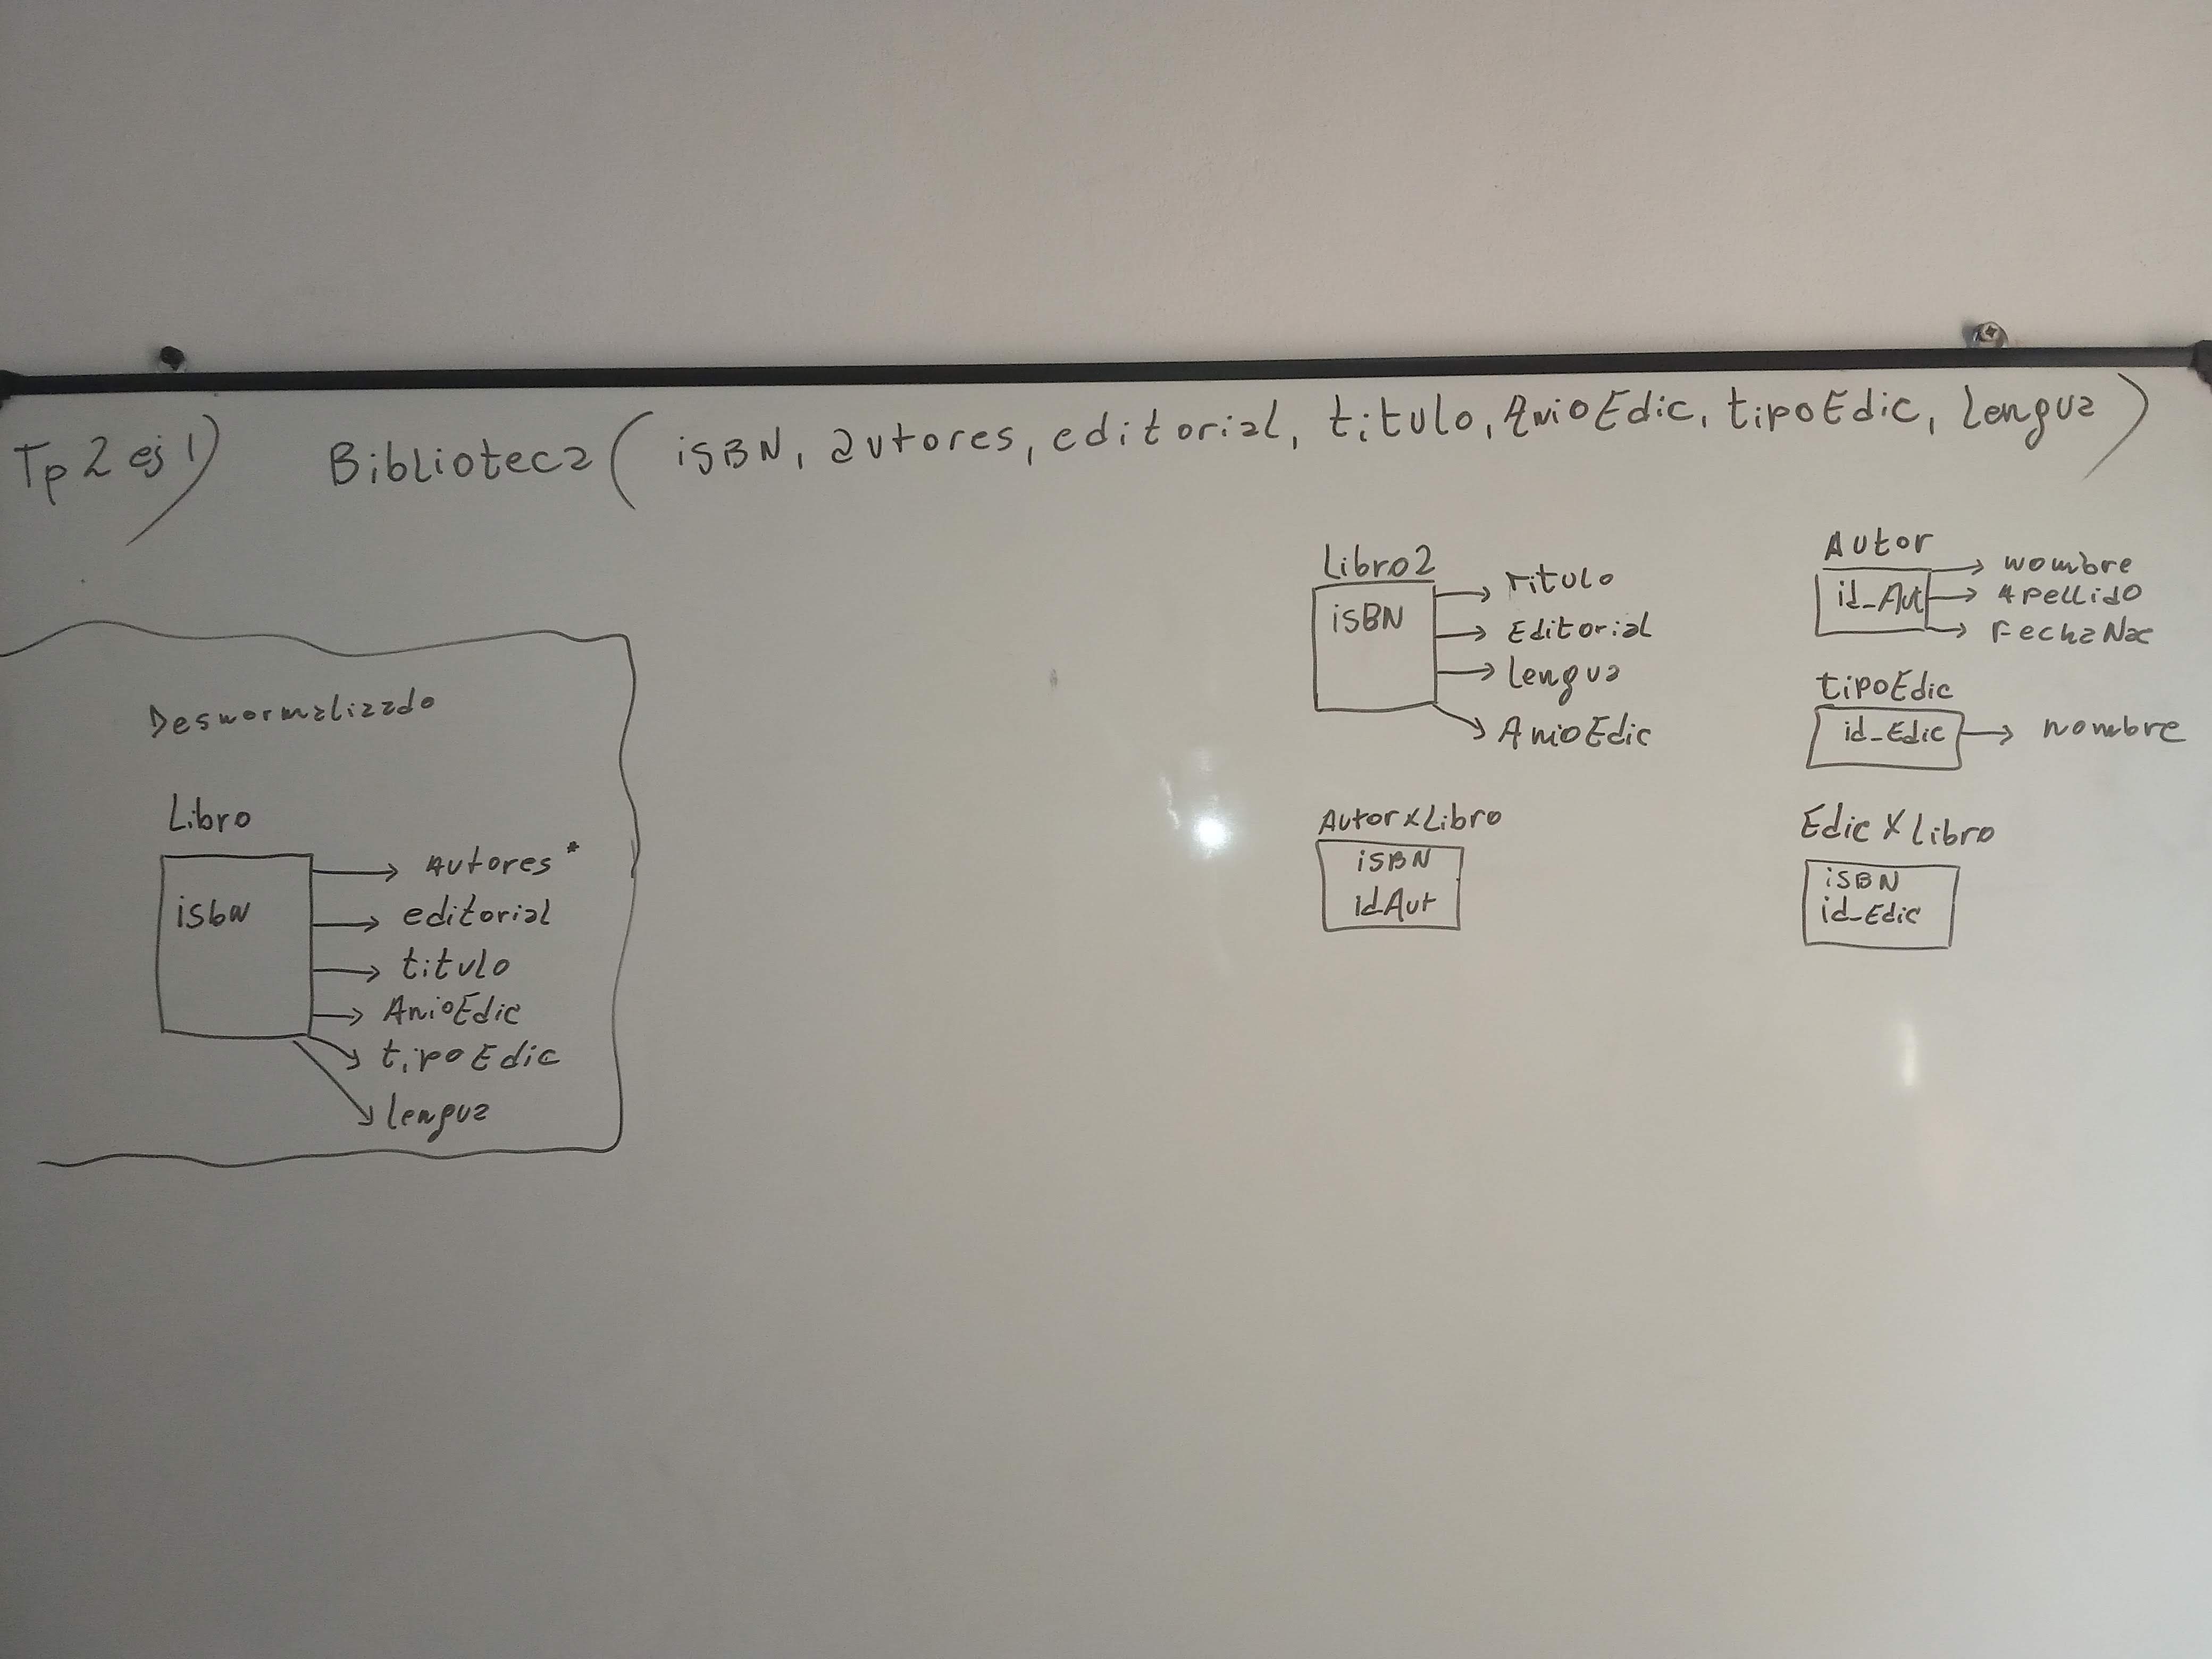 Tp 2 ej 1) Biblioteca ( isBN, autores, editorial, titulo, AnioEdic, tipoEdic, Lengua )
Desnormalizado
Libro
isbn
Autores*
editorial
titulo
AnioEdic
tipoEdic
lengua
Libro2
isBN
Titulo
Editorial
Lengua
AnioEdic
Autor
id_Aut
nombre
Apellido
FechaNac
tipoEdic
id_Edic
nombre
AutorxLibro
isBN
idAut
Edic X Libro
isBN
id_Edic